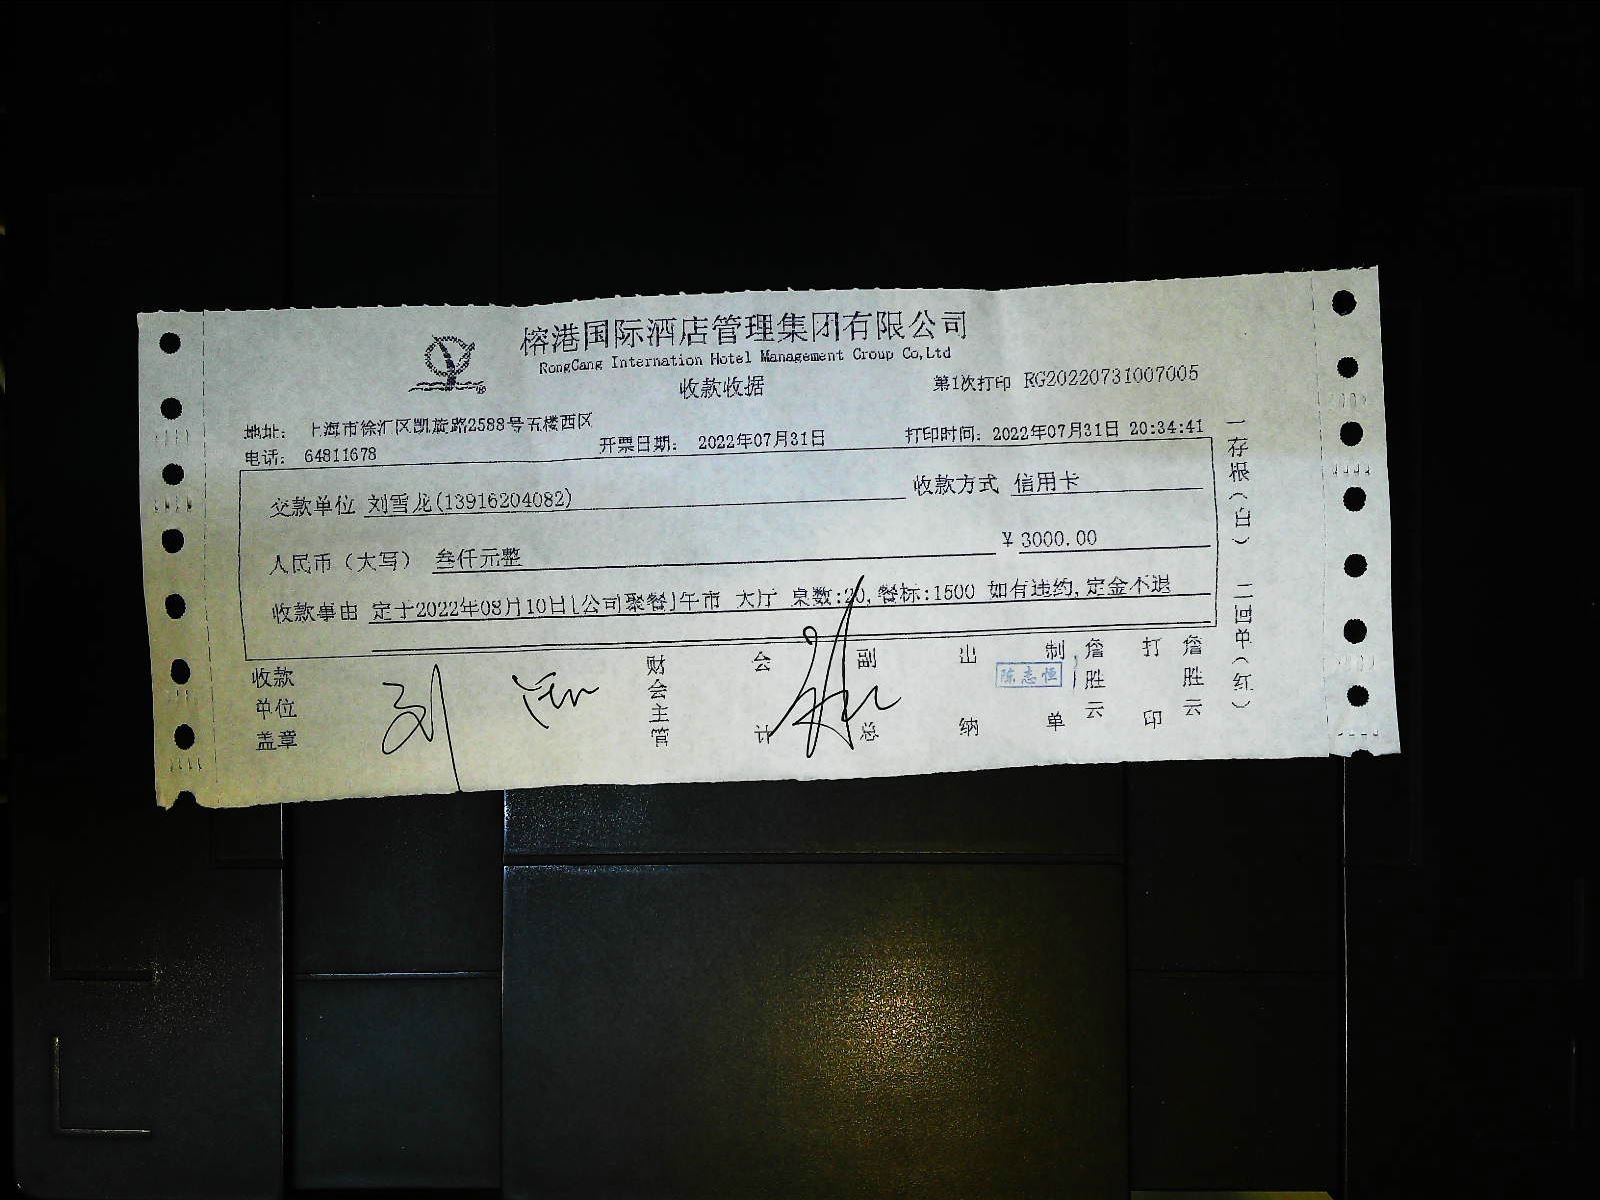 榕港国际酒店管理集团有限公司
RongGang Internation Hotel Management Group Co,Ltd
收款收据
第1次打印 RG20220731007005
地址： 上海市徐汇区凯旋路2588号五楼西区
电话： 64811678
开票日期： 2022年07月31日
打印时间：2022年07月31日 20:34:41
交款单位 刘雪龙(13916204082)
收款方式 信用卡
人民币（大写） 叁仟元整
￥3000.00
收款事由 定于2022年08月10日[公司聚餐]午市 大厅 桌数:20,餐标:1500 如有违约,定金不退
收款单位盖章
财会主管
会计
副总
出纳
陈志恒
制单
詹胜云
打印
詹胜云
一存根(白) 二回单(红)